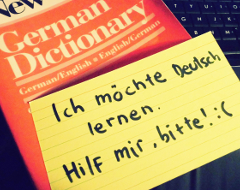 New
German
Dictionary
German/English • English/German
Ich möchte Deutsch
lernen.
Hilf mir, bitte! :(